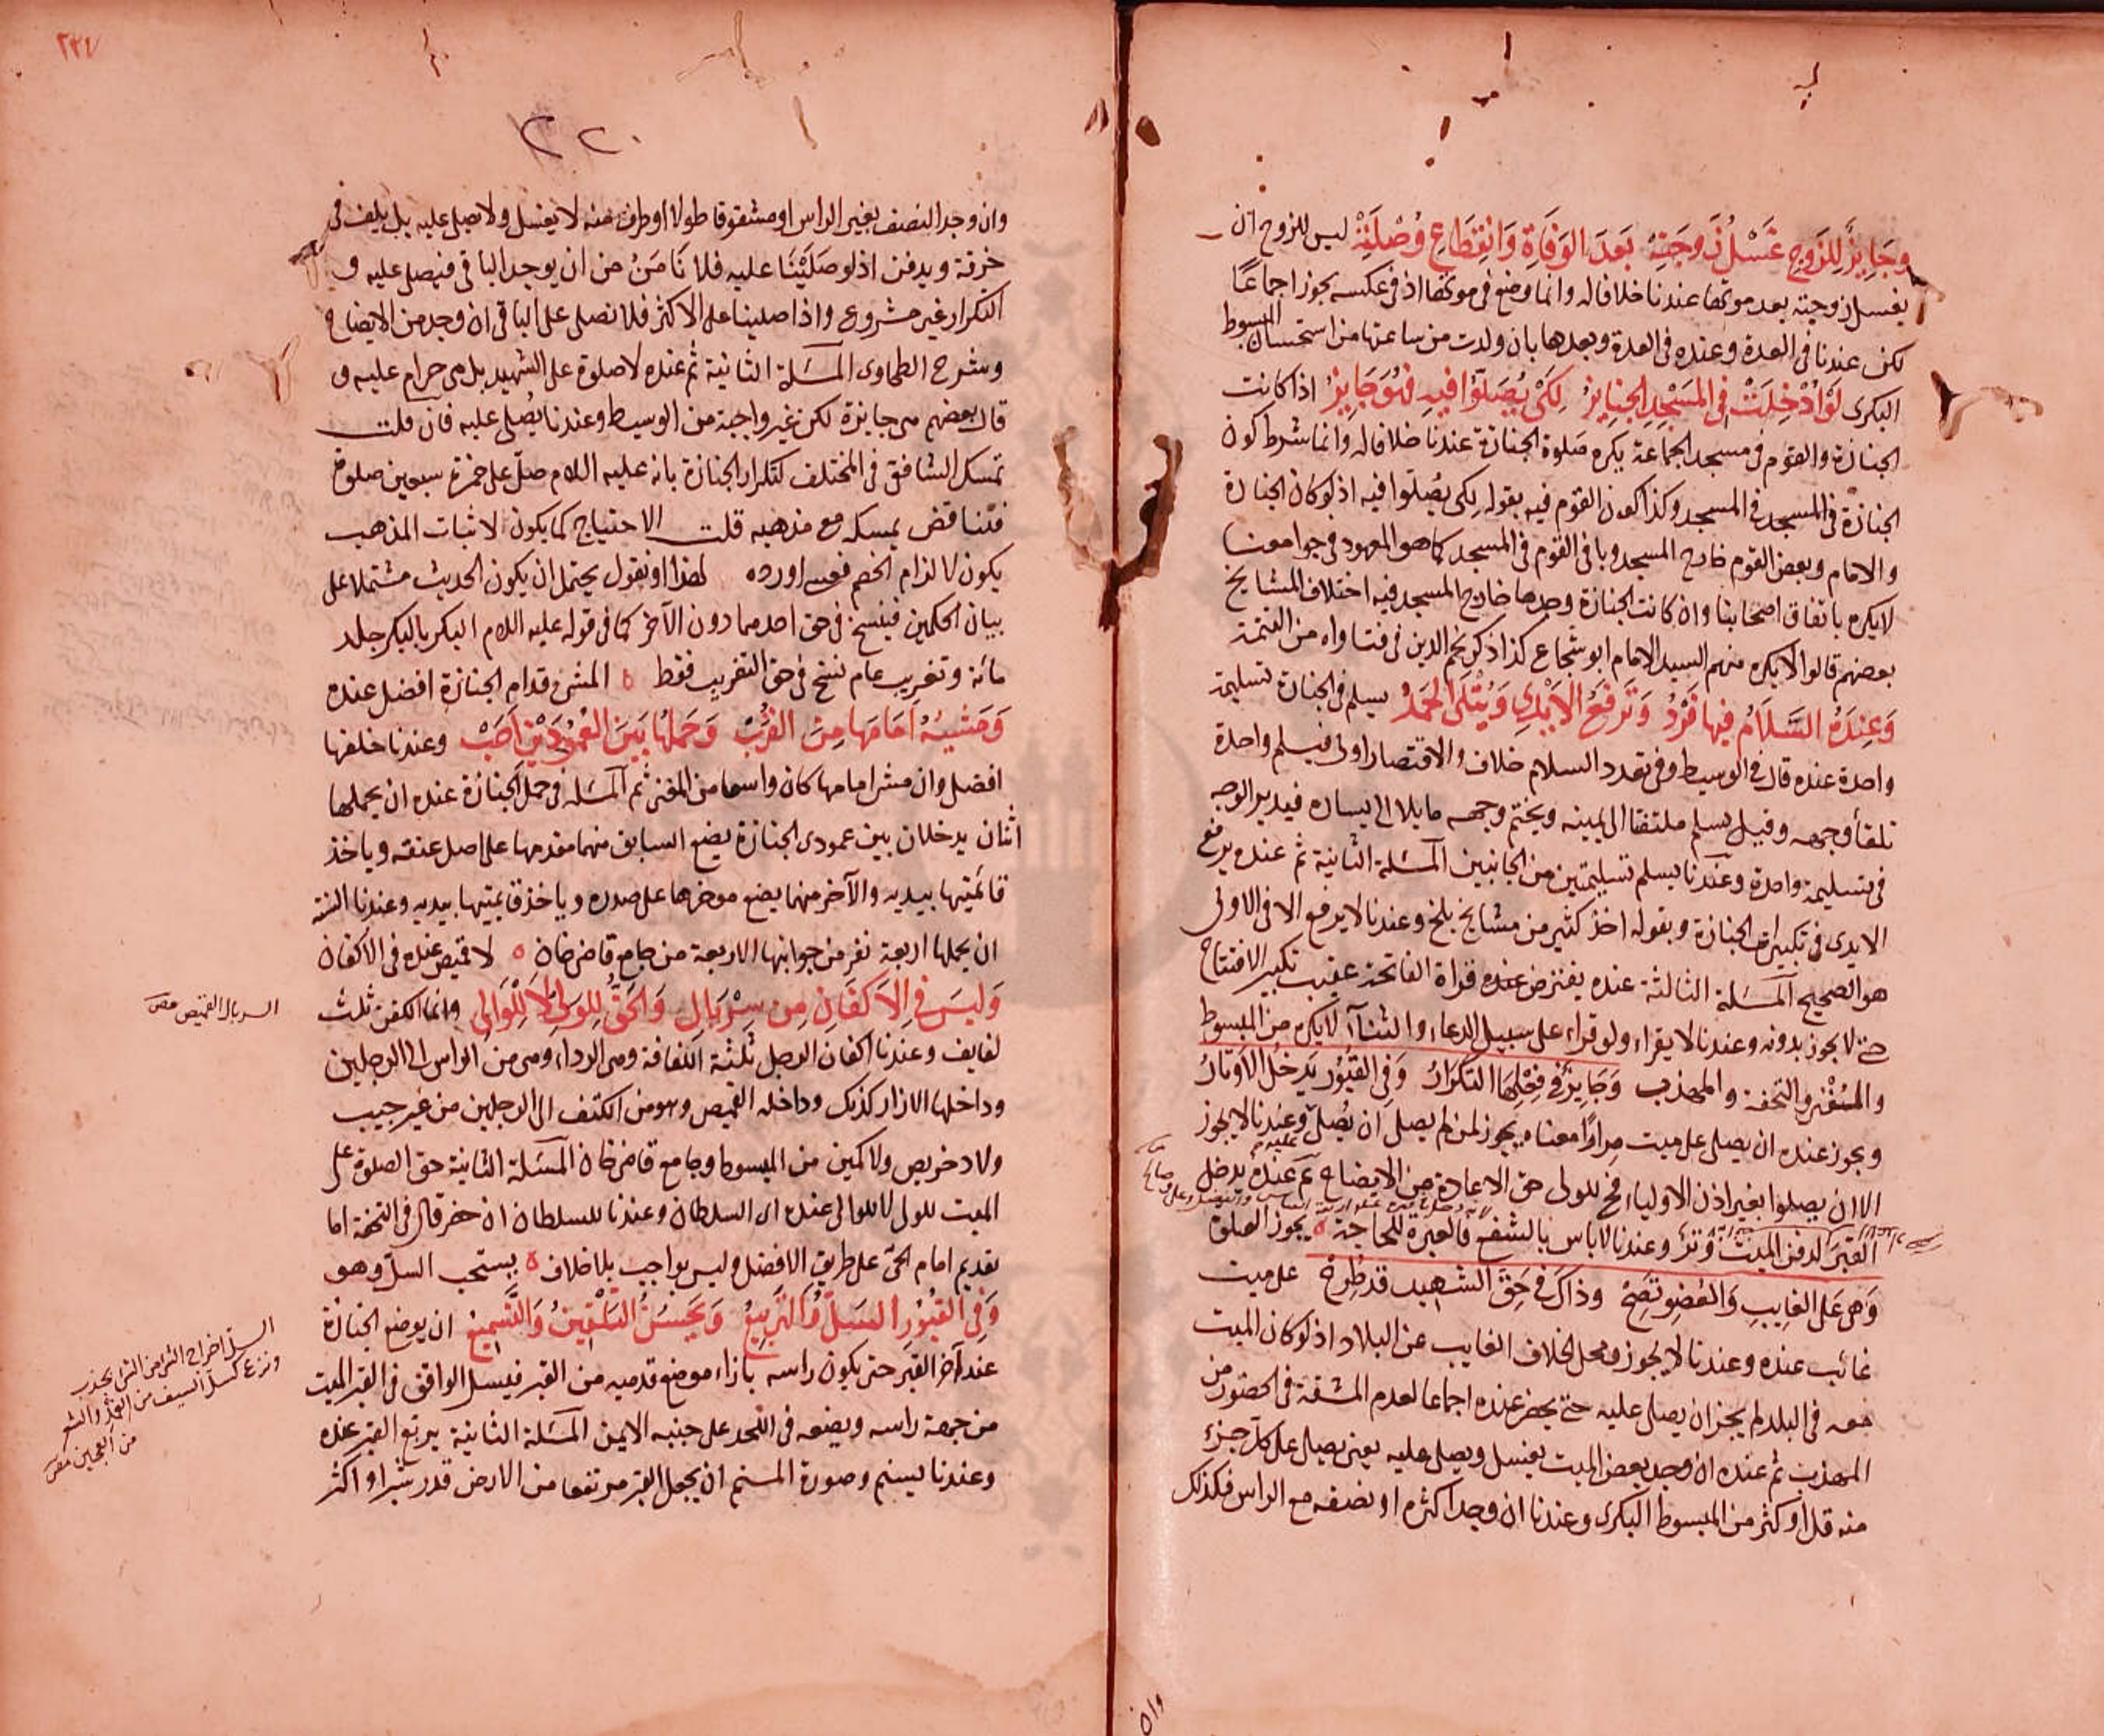 وجايز للزوج غسل زوجته بعد الوفاة وانقطاع وصلته ليس للزوج ان
يغسل زوجته بعد موتها عندنا خلافا له وانما وضع في موتها اذ في عكسه يجوز اجماعا
لكن عندنا في العدة وعنده في العدة وبعدها بان ولدت من ساعتها من استحسان المبسوط
البكرى لو ادخلت في المسجد الجنايز لكى يصلوا فيه فهو جايز اذا كانت
الجنازة والقوم في مسجد الجماعة يكره صلوة الجنازة عندنا خلافا له وانما شرط كون
الجنازة في المسجد في المسجد وكذا كون القوم فيه بقوله لكى يصلوا فيه اذ لو كان الجنازة
والامام وبعض القوم خارج المسجد وباقى القوم في المسجد كما هو المعهود في جوامعنا
لا يكره باتفاق اصحابنا وان كانت الجنازة وحدها خارج المسجد فيه اختلاف المشايخ
بعضهم قالوا لا يكره منهم السيد الامام ابو شجاع كذا ذكر نجم الدين في فتاواه من التتمة
وعنده السلام فيها فرد وترفع الايدى ويتلى الحمد يسلم في الجنازة تسليمة
واحدة عنده قال في الوسيط وفى تعدد السلام خلاف والاقتصار اولى فيسلم واحدة
تلقأ وجهه وقيل يسلم ملتفتا الى يمينه ويختم وجهه مايلا الى يساره فيدير الوجه
في تسليمة واحدة وعندنا يسلم تسليمتين من الجانبين المسئلة الثانية ثم عنده يرفع
الايدى في تكبيرات الجنازة وبقوله اخذ كثير من مشايخ بلخ وعندنا لا يرفع الا في الاولى
هو الصحيح المسئلة الثالثة عنده يفترض عنده قراة الفاتحة عقيب تكبير الافتتاح
حتى لا يجوز بدونه وعندنا لا يقراء ولو قراء على سبيل الدعاء والثناء لا يكره من المبسوط
والمغنى والتحفة والمهذب وجايز في فعلها التكرار وفى القبور يدخل الاوتار
ويجوز عنده ان يصلى على ميت مرارا معناه يجوز لمن لم يصل ان يصلى عليه وعندنا لا يجوز
الا ان يصلوا بغير اذن الاولياء فح للولى حق الاعادة من الايضاح ثم عنده يدخل
القبر لدفن الميت وتر وعندنا لا باس بالشفع فالعبرة للحاجة ه يجوز الصلوة
وهى على الغايب والعضو تصح وذاك في حق الشهيد قد طرح على ميت
غائب عنده وعندنا لا يجوز ومحل الخلاف الغايب عن البلاد اذ لو كان الميت
معه في البلد لم يجز ان يصلى عليه حتى يحضر عنده اجماعا لعدم المشقة في الحضور من
المهذب ثم عنده ان وجد بعض الميت يغسل ويصلى عليه يعنى يصلى على كل جزء
منه قل او كثر من المبسوط البكرى وعندنا ان وجد اكثره او نصفه مع الراس فكذلك
وان
٢٢٠
وان وجد النصف بغير الراس او مشقوقا طولا او طرف منه لا يغسل ولا يصلى عليه بل يلف في
خرقة ويدفن اذ لو صلينا عليه فلا نامن من ان يوجد الباقى فيصلى عليه و
التكرار غير مشروع واذا صلينا على الاكثر فلا نصلى على الباقى ان وجد من الايضاح
وشرح الطحاوى المسئلة الثانية ثم عنده لا صلوة على الشهيد بل هى حرام عليه و
قال بعضهم هى جايزة لكن غير واجبة من الوسيط وعندنا يصلى عليه فان قلت
تمسك الشافعى في المختلف لتكرار الجنازة بانه عليه السلام صلى على حمزة سبعين صلوة
فتناقض تمسكه مع مذهبه قلت الاحتياج كما يكون لاثبات المذهب
يكون لالزام الخصم فعسى اورده لهذا او نقول يحتمل ان يكون الحديث مشتملا على
بيان الحكمين فينسخ في حق احدهما دون الآخر كما في قوله عليه السلام البكر بالبكر جلد
مائة وتغريب عام نسخ في حق التغريب فقط ه المشى قدام الجنازة افضل عنده
ومشيه امامها من القرب وحملها بين العمودين احب وعندنا خلفها
افضل وان مشى امامها كان واسعا من المغنى ثم المسئلة في حمل الجنازة عنده ان يحملها
اثنان يدخلان بين عمودى الجنازة يضع السابق منهما مقدمها على اصل عنقه وياخذ
قائمتيها بيديه والآخر منهما يضع موخرها على صدره وياخذ قايمتيها بيديه وعندنا السنة
ان يحملها اربعة نفر من جوانبها الاربعة من جامع قاضى خان ه لا قميص عنده في الاكفان
وليس في الاكفان من سربال والحق للولى لا للوالى وانما الكفن ثلث
لفايف وعندنا اكفان الرجل ثلثة اللفافة وهى الرداء وهى من الراس الى الرجلين
وداخلها الازار كذلك وداخله القميص وهو من الكتف الى الرجلين من غير جيب
ولا دخريص ولا كمين من المبسوط وجامع قاضى خان المسئلة الثانية حق الصلوة على
الميت للولى لا للوالى عنده اى السلطان وعندنا للسلطان ان حضر قال في التحفة اما
تقديم امام الحى على طريق الافضل وليس بواجب بلا خلاف ه يستحب السل وهو
وفى القبور السل والتربيع ويحسن التلقين والتسميع ان يوضع الجنازة
عند آخر القبر حتى يكون راسه بازاء موضع قدميه من القبر فيسل الواقف في القبر الميت
من جهة راسه ويضعه في اللحد على جنبه الايمن المسئلة الثانية يربع القبر عنده
وعندنا يسنم وصورة المسنم ان يجعل القبر مرتفعا من الارض قدر شبر او اكثر
السربال القميص مص
السل اخراج الشئ من الشئ بجذب
ونزع كسل السيف من الغمد والشعر
من العجين مص